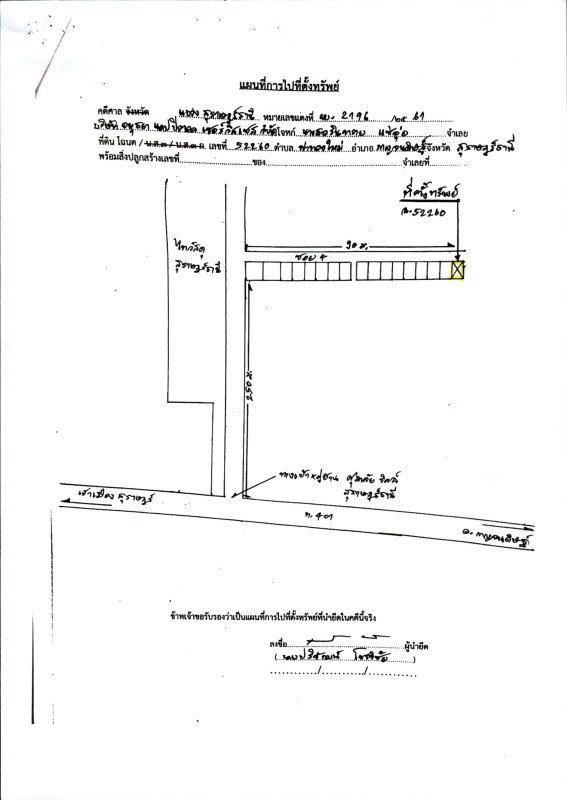 แผนที่การไปที่ตั้งทรัพย์
คดีศาล จังหวัด แขวง สุราษฎร์ธานี หมายเลขแดงที่ ผบ. 2196 /๒๕ 61
บริษัท อยุธยา แคปปิตอล เซอร์วิสเซส จำกัด โจทก์ จำเลย
ที่ดิน โฉนด / น.ส.๓ / น.ส.๓ ก. เลขที่ 52260 ตำบล ท่าทองใหม่ อำเภอ กาญจนดิษฐ์ จังหวัด สุราษฎร์ธานี
พร้อมสิ่งปลูกสร้างเลขที่ ของ จำเลยที่
ที่ตั้งทรัพย์
ฉ.52260
ไทวัสดุ
สุราษฎร์ธานี
90 ม.
ซอย 4
250 ม.
ทางเข้าหมู่บ้าน ศุภาลัย วิลล์
สุราษฎร์ธานี
เข้าเมือง สุราษฎร์
ท. 401
อ. กาญจนดิษฐ์
ข้าพเจ้าขอรับรองว่าเป็นแผนที่การไปที่ตั้งทรัพย์ที่นำยึดในคดีนี้จริง
ลงชื่อ ผู้นำยึด